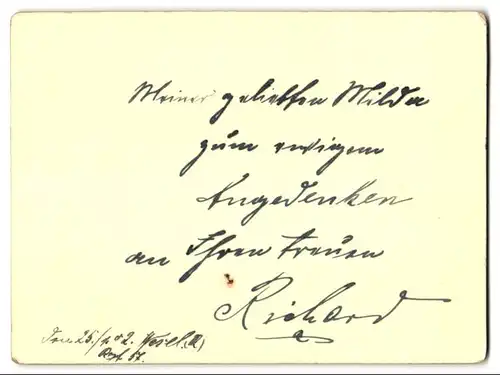 Meiner geliebten Milda
zum ewigem
Angedenken
an Ihren treuen
Richard
Den 25./